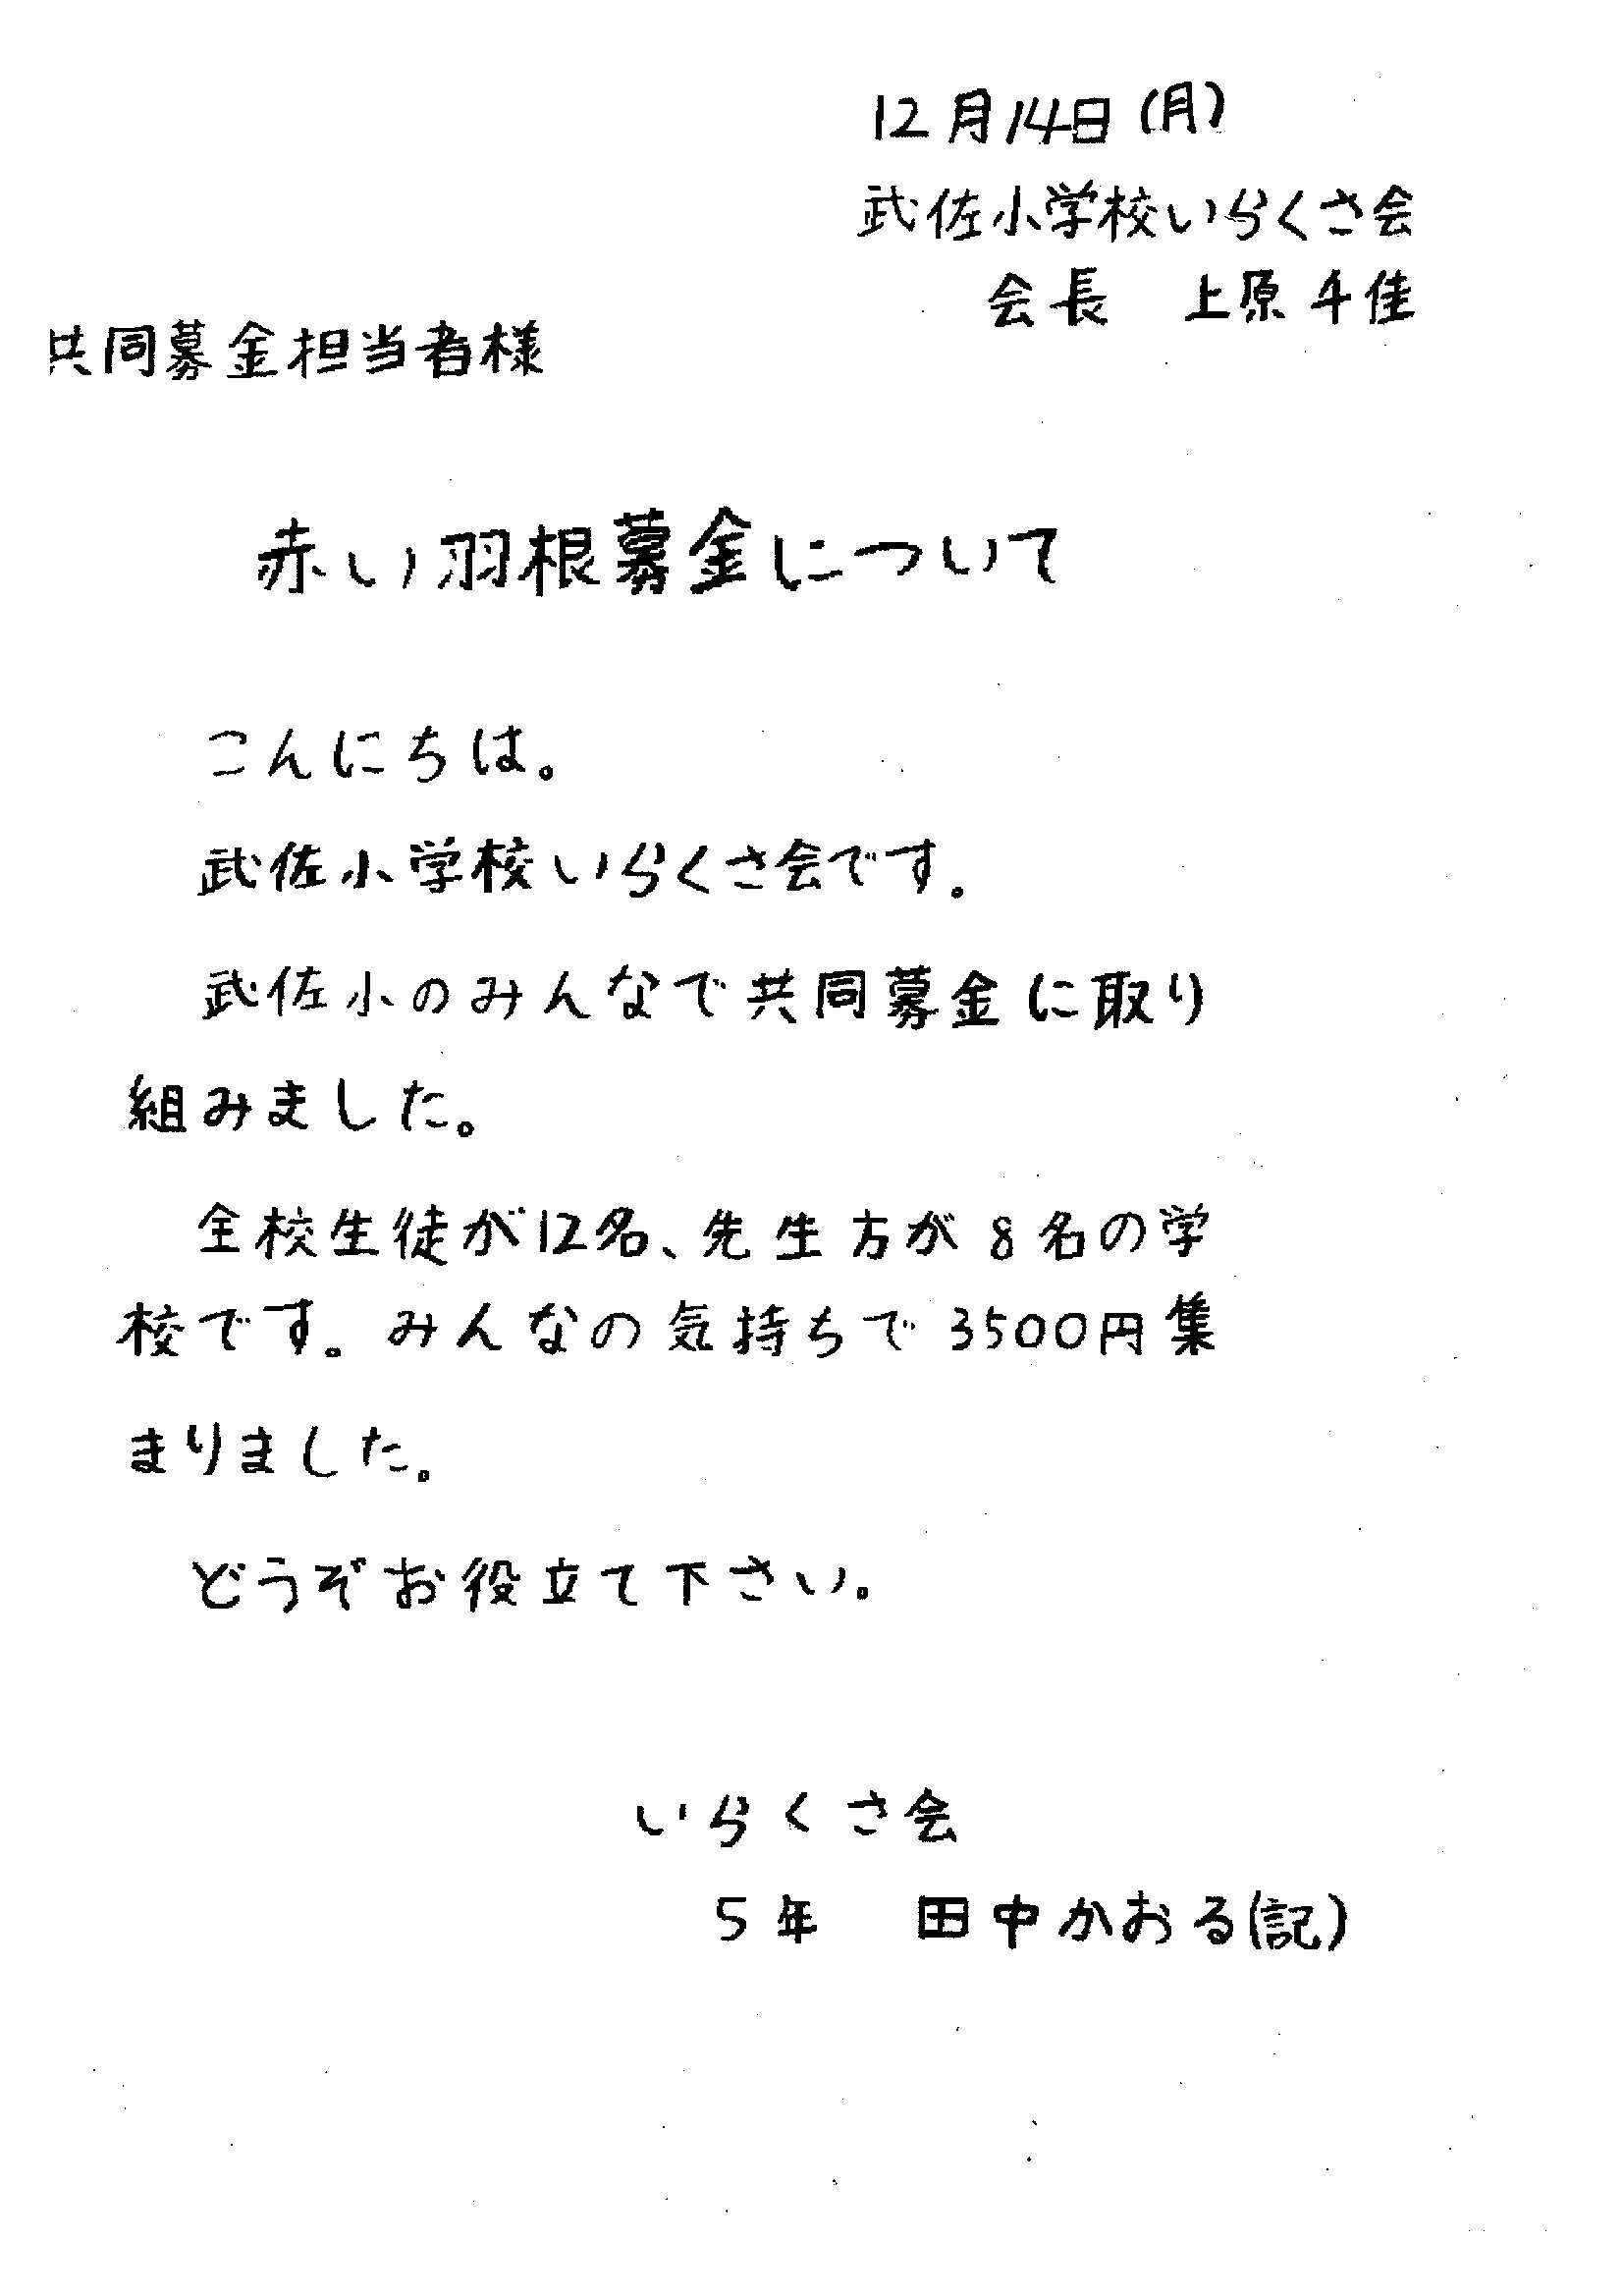 12月14日(月)
武佐小学校いらくさ会
会長　上原千佳
共同募金担当者様
赤い羽根募金について
こんにちは。
武佐小学校いらくさ会です。
武佐小のみんなで共同募金に取り
組みました。
全校生徒が12名、先生方が8名の学
校です。みんなの気持ちで3500円集
まりました。
どうぞお役立て下さい。
いらくさ会
5年　田中かおる(記)